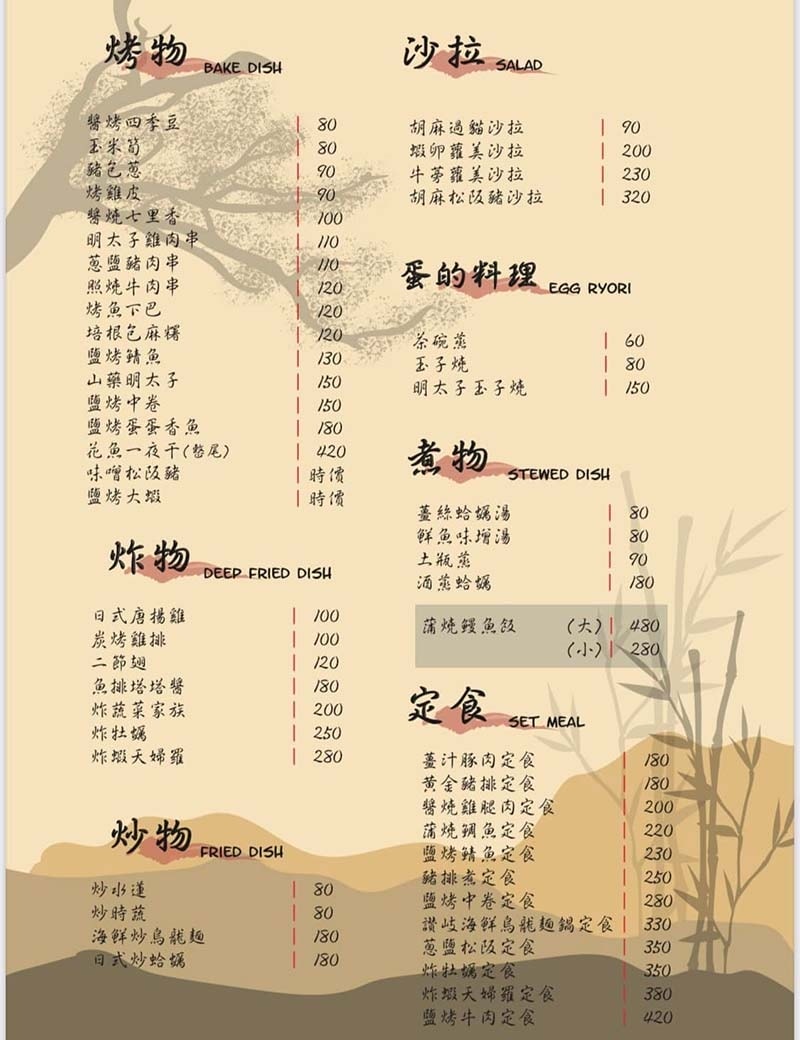 烤物 BAKE DISH
醬烤四季豆 80
玉米筍 80
豬包蔥 90
烤雞皮 90
醬燒七里香 100
明太子雞肉串 110
蔥鹽豬肉串 110
照燒牛肉串 120
烤魚下巴 120
培根包麻糬 120
鹽烤鯖魚 130
山藥明太子 150
鹽烤中卷 150
鹽烤蛋蛋香魚 180
花魚一夜干(整尾) 420
味噌松阪豬 時價
鹽烤大蝦 時價
炸物 DEEP FRIED DISH
日式唐揚雞 100
炭烤雞排 100
二節翅 120
魚排塔塔醬 180
炸蔬菜家族 200
炸牡蠣 250
炸蝦天婦羅 280
炒物 FRIED DISH
炒水蓮 80
炒時蔬 80
海鮮炒烏龍麵 180
日式炒蛤蠣 180
沙拉 SALAD
胡麻過貓沙拉 90
蝦卵蘿美沙拉 200
牛蒡蘿美沙拉 230
胡麻松阪豬沙拉 320
蛋的料理 EGG RYORI
茶碗蒸 60
玉子燒 80
明太子玉子燒 150
煮物 STEWED DISH
薑絲蛤蠣湯 80
鮮魚味增湯 80
土瓶蒸 90
酒蒸蛤蠣 180
蒲燒鰻魚飯 (大) 480
(小) 280
定食 SET MEAL
薑汁豚肉定食 180
黃金豬排定食 180
醬燒雞腿肉定食 200
蒲燒鯛魚定食 220
鹽烤鯖魚定食 230
豬排煮定食 250
鹽烤中卷定食 280
讚岐海鮮烏龍麵鍋定食 330
蔥鹽松阪定食 350
炸牡蠣定食 350
炸蝦天婦羅定食 380
鹽烤牛肉定食 420